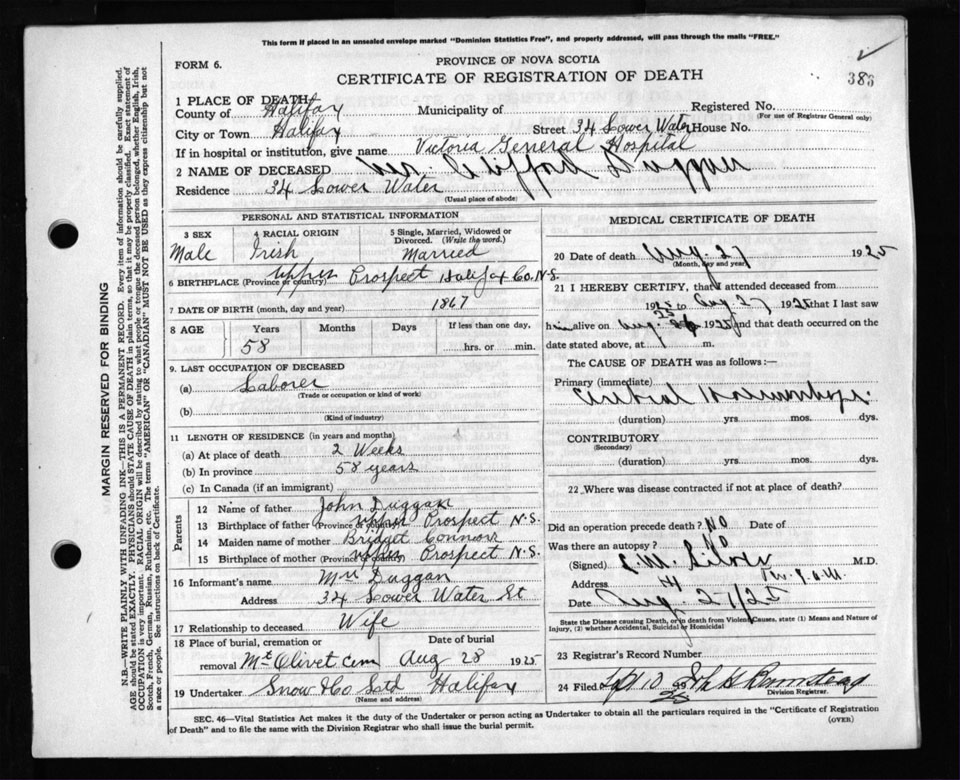 This form if placed in an unsealed envelope marked "Dominion Statistics Free", and properly addressed, will pass through the mails "FREE."
FORM 6.
PROVINCE OF NOVA SCOTIA
CERTIFICATE OF REGISTRATION OF DEATH
383
1 PLACE OF DEATH
County of Halifax Municipality of Registered No.
(For use of Registrar General only)
City or Town Halifax Street 34 Lower Water House No.
If in hospital or institution, give name Victoria General Hospital
2 NAME OF DECEASED Mr Clifford Duggan
Residence 34 Lower Water
(Usual place of abode)
PERSONAL AND STATISTICAL INFORMATION
3 SEX 4 RACIAL ORIGIN 5 Single, Married, Widowed or Divorced. (Write the word.)
Male Irish Married
6 BIRTHPLACE (Province or country) Upper Prospect Halifax Co. N.S.
7 DATE OF BIRTH (month, day and year) 1867
8 AGE Years Months Days If less than one day
58 hrs. or min.
9. LAST OCCUPATION OF DECEASED
(a) Laborer
(Trade or occupation or kind of work)
(b)
(Kind of industry)
11 LENGTH OF RESIDENCE (in years and months)
(a) At place of death 2 Weeks
(b) In province 58 years
(c) In Canada (if an immigrant)
Parents
12 Name of father John Duggan
13 Birthplace of father (Province or country) Upper Prospect N.S.
14 Maiden name of mother Bridget
15 Birthplace of mother (Province or country) Upper Prospect N.S.
16 Informant's name Mrs Duggan
Address 34 Lower Water St
17 Relationship to deceased Wife
18 Place of burial, cremation or Date of burial
removal Mt Olivet Cem Aug 28 1925
19 Undertaker Snow & Co Ltd Halifax
(Name and address)
MEDICAL CERTIFICATE OF DEATH
20 Date of death Aug. 27 1925
(Month, day and year)
21 I HEREBY CERTIFY, that I attended deceased from
192 to Aug. 27 1925 that I last saw
him alive on Aug. 26 1925 and that death occurred on the
date stated above, at m.
The CAUSE OF DEATH was as follows:—
Primary (immediate)
Cerebral Hemorrhage.
(duration) yrs. mos. dys.
CONTRIBUTORY
(Secondary)
(duration) yrs. mos. dys.
22 Where was disease contracted if not at place of death?
Did an operation precede death? No Date of
Was there an autopsy? No
(Signed) L.M. Silver M.D.
Address
Date Aug. 27/25
State the Disease causing Death, or in death from Violent Causes, state (1) Means and Nature of
Injury, (2) whether Accidental, Suicidal or Homicidal
23 Registrar's Record Number
24 Filed Sept 10 1925
Division Registrar.
SEC. 46—Vital Statistics Act makes it the duty of the Undertaker or person acting as Undertaker to obtain all the particulars required in the "Certificate of Registration
of Death" and to file the same with the Division Registrar who shall issue the burial permit.
(OVER)
MARGIN RESERVED FOR BINDING
N.B.—WRITE PLAINLY WITH UNFADING INK—THIS IS A PERMANENT RECORD. Every item of information should be carefully supplied.
AGE should be stated EXACTLY. PHYSICIANS should STATE CAUSE OF DEATH in plain terms, so that it may be properly classified. Exact statement of
OCCUPATION is very important. RACIAL ORIGIN will be described by stating to what people or tongue the deceased person belonged, whether English, Irish,
Scotch, French, German, Russian, Ruthenian, etc. The terms "AMERICAN" OR "CANADIAN" MUST NOT BE USED as they express citizenship but not
a race or people. See instructions on back of Certificate.